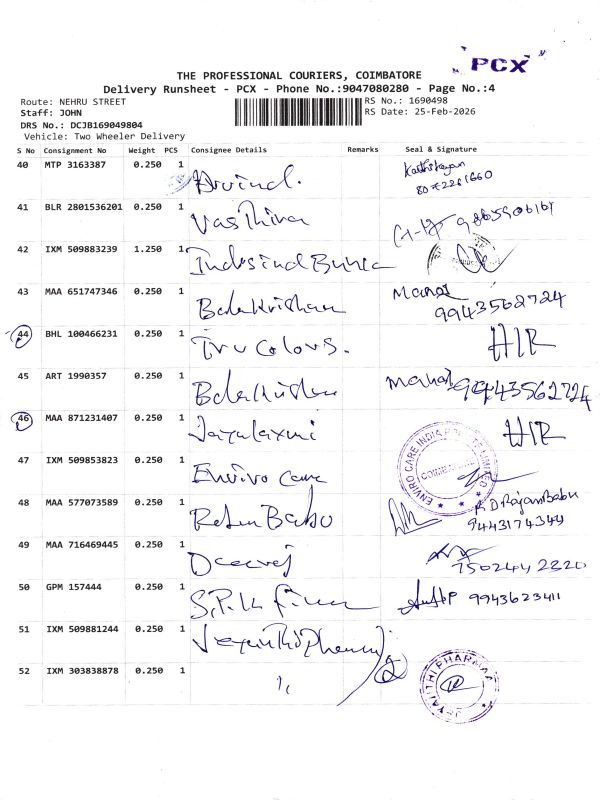 PCX
THE PROFESSIONAL COURIERS, COIMBATORE
Delivery Runsheet - PCX - Phone No.:9047080280 - Page No.:4
Route: NEHRU STREET
RS No.: 1690498
Staff: JOHN
RS Date: 25-Feb-2026
DRS No.: DCJB169049804
Vehicle: Two Wheeler Delivery
S No Consignment No Weight PCS Consignee Details Remarks Seal & Signature
40 MTP 3163387 0.250 1 Arvind. Karthikeyan
41 BLR 2801536201 0.250 1
42 IXM 509883239 1.250 1
43 MAA 651747346 0.250 1 Balakrishnan Manoj 9943562724
44 BHL 100466231 0.250 1 Tru Colors. HIR
45 ART 1990357 0.250 1 Manoj 9943562724
46 MAA 871231407 0.250 1 Jayalaxmi HIR
47 IXM 509853823 0.250 1 Enviro Care ENVIRO CARE INDIA PRIVATE LIMITED COIMBATORE
48 MAA 577073589 0.250 1 Babu R D Rajam Babu 9443174344
49 MAA 716469445 0.250 1 Deeraj 7502442320
50 GPM 157444 0.250 1 9943623411
51 IXM 509881244 0.250 1
52 IXM 303838878 0.250 1 JEYANTHI PHARMAA